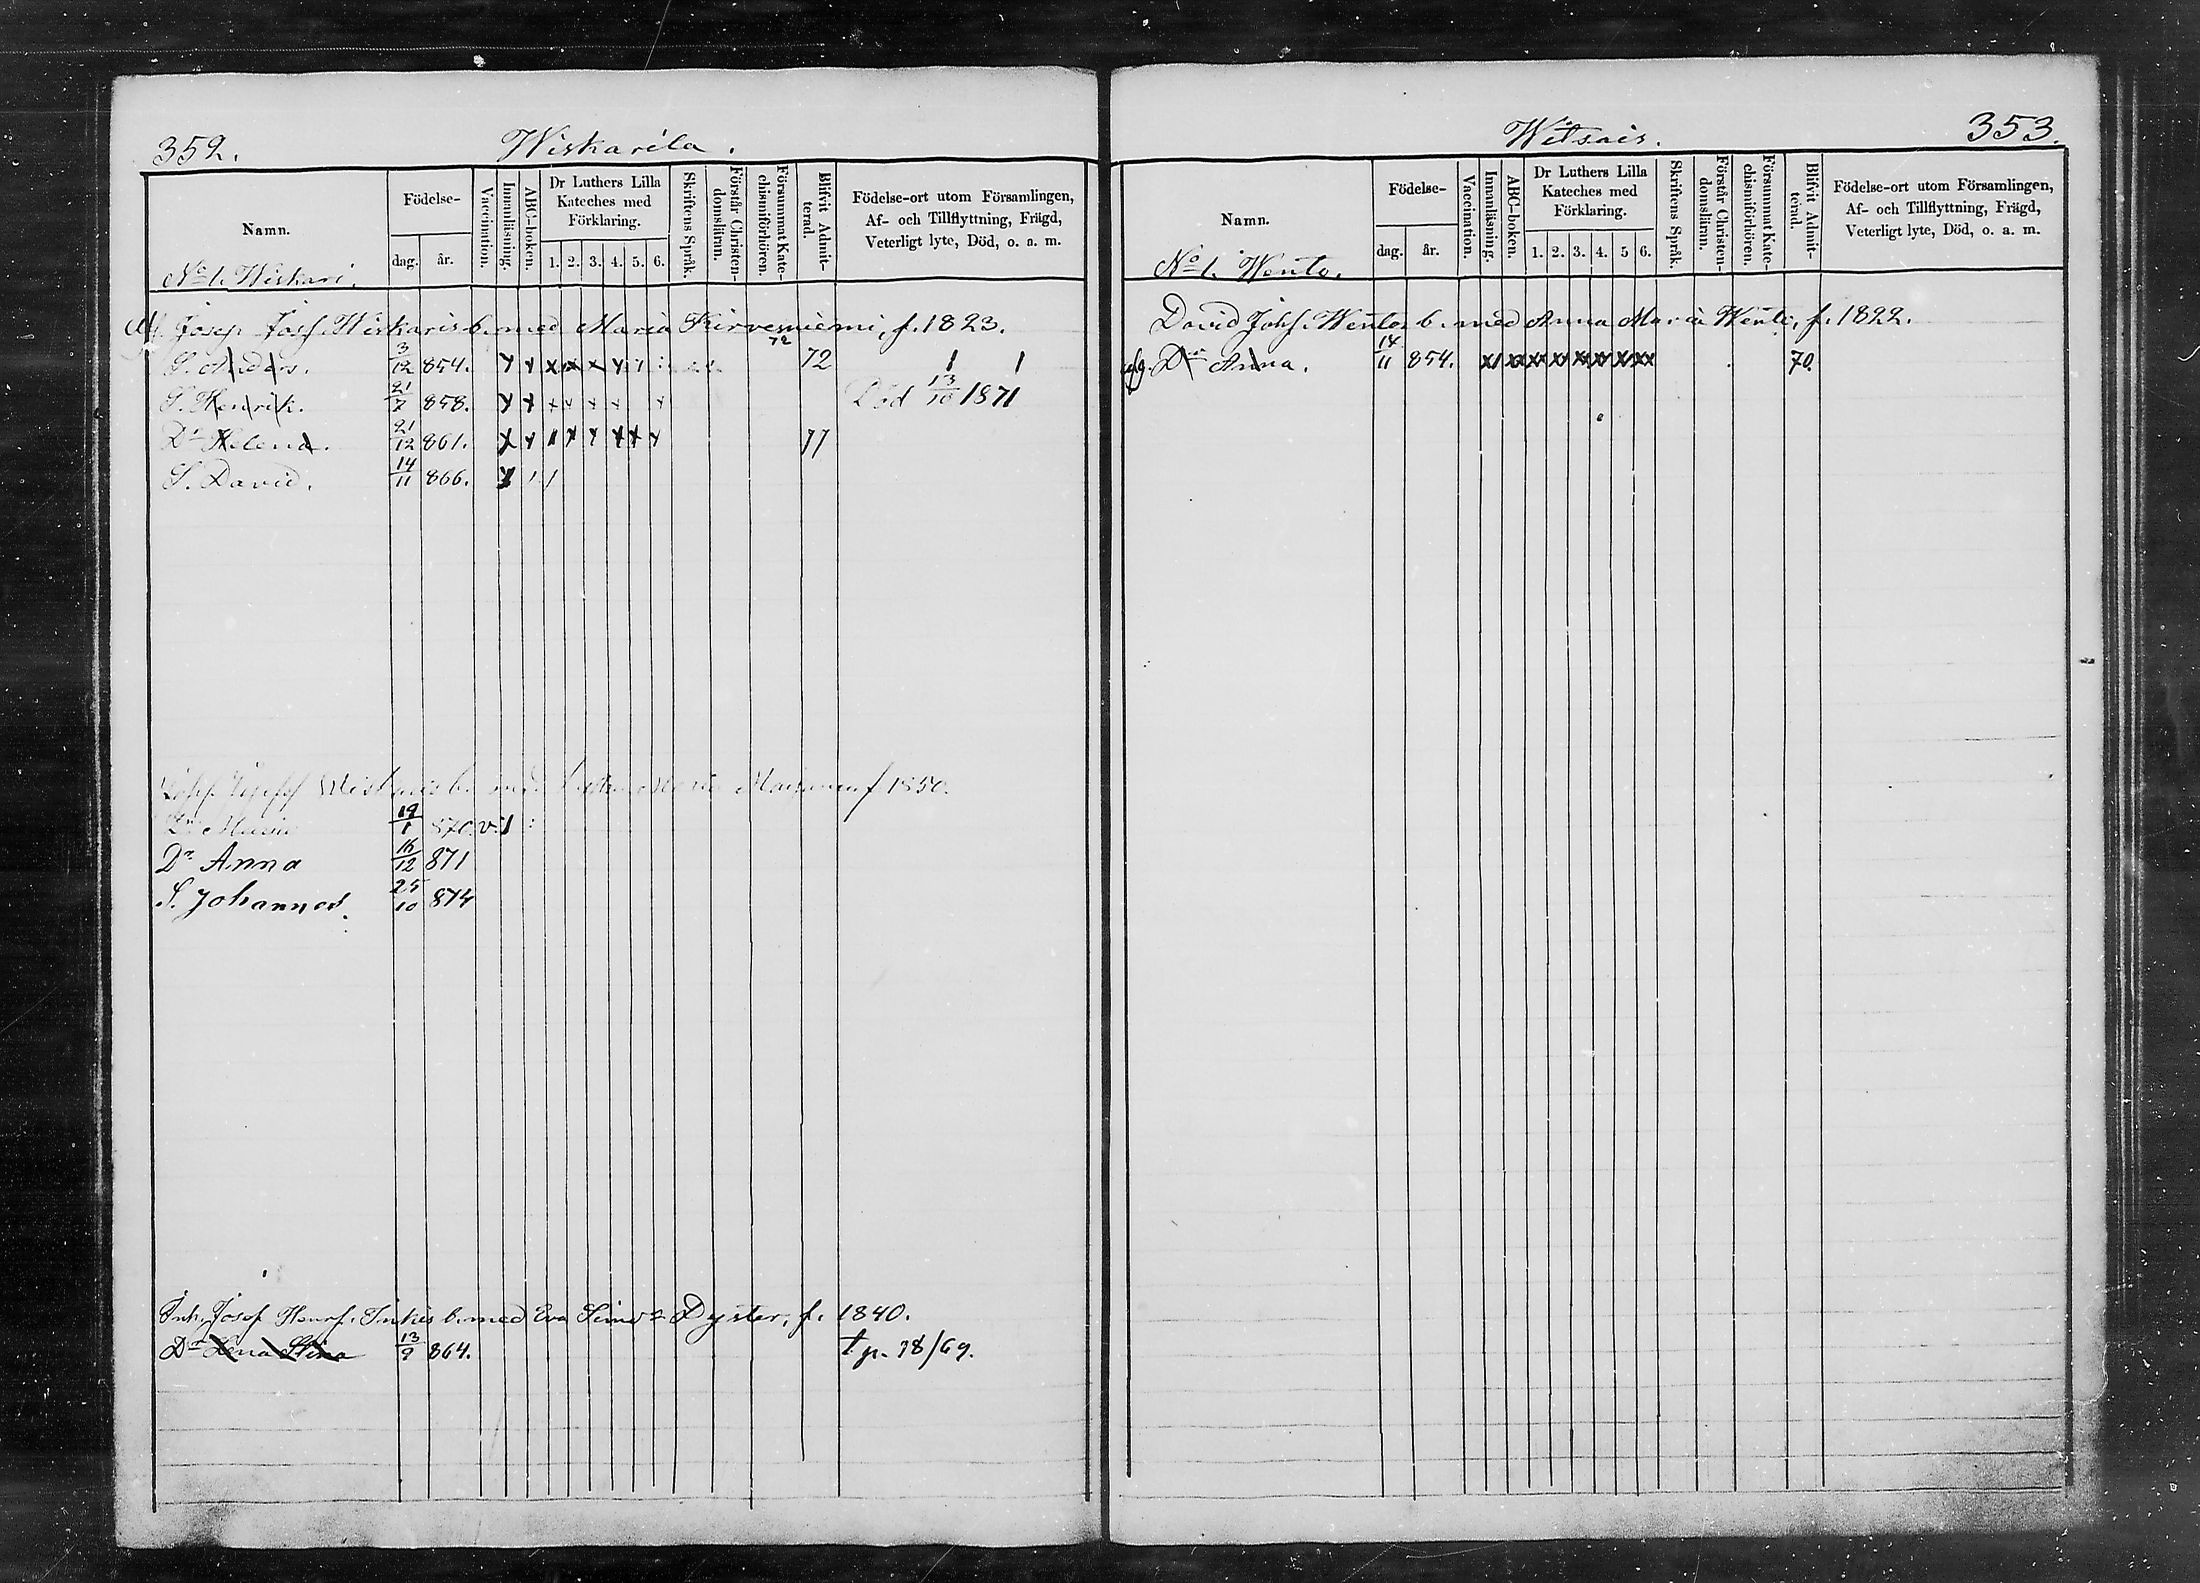 352. Wiskarila.
Namn.
Födelse-
dag. år.
Vaccination.
Innanläsning.
ABC-boken.
Dr Luthers Lilla Kateches med Förklaring.
1. 2. 3. 4. 5. 6.
Skriftens Språk.
Förstår Christen-domsläran.
Försummat Kate-chismiförhören.
Blifvit Admit-terad.
Födelse-ort utom Församlingen,
Af- och Tillflyttning, Frägd,
Veterligt lyte, Död, o. a. m.
No 1. Wiskari.
Josep Josefs. Wiskaris b. med Maria Kirvesniemi, f. 1823.
72
S. Anders. 3/12 854. 72
S. Henrik. 21/7 858. Död 13/10 1871
Dr Helena. 21/12 861. 77
S. David. 14/11 866.
Wiskaris b. med Maria f 1850.
Dr Maria 19/1 870. v.
Dr Anna 16/12 871
S. Johannes. 25/10 874
Inh. Josef Henrs. Inkis b. med Eva Simsdr Dyster, f. 1840.
Dr Lena Stina 13/9 864. † p. 78/69.
Witsais. 353.
Namn.
Födelse-
dag. år.
Vaccination.
Innanläsning.
ABC-boken.
Dr Luthers Lilla Kateches med Förklaring.
1. 2. 3. 4. 5 6.
Skriftens Språk.
Förstår Christen-domsläran.
Försummat Kate-chismiförhören.
Blifvit Admit-terad.
Födelse-ort utom Församlingen,
Af- och Tillflyttning, Frägd,
Veterligt lyte, Död, o. a. m.
No 1. Wento.
David Johs. Wentos b. med Anna Maria Wento, f. 1822.
Dr Anna. 14/11 854. 70.